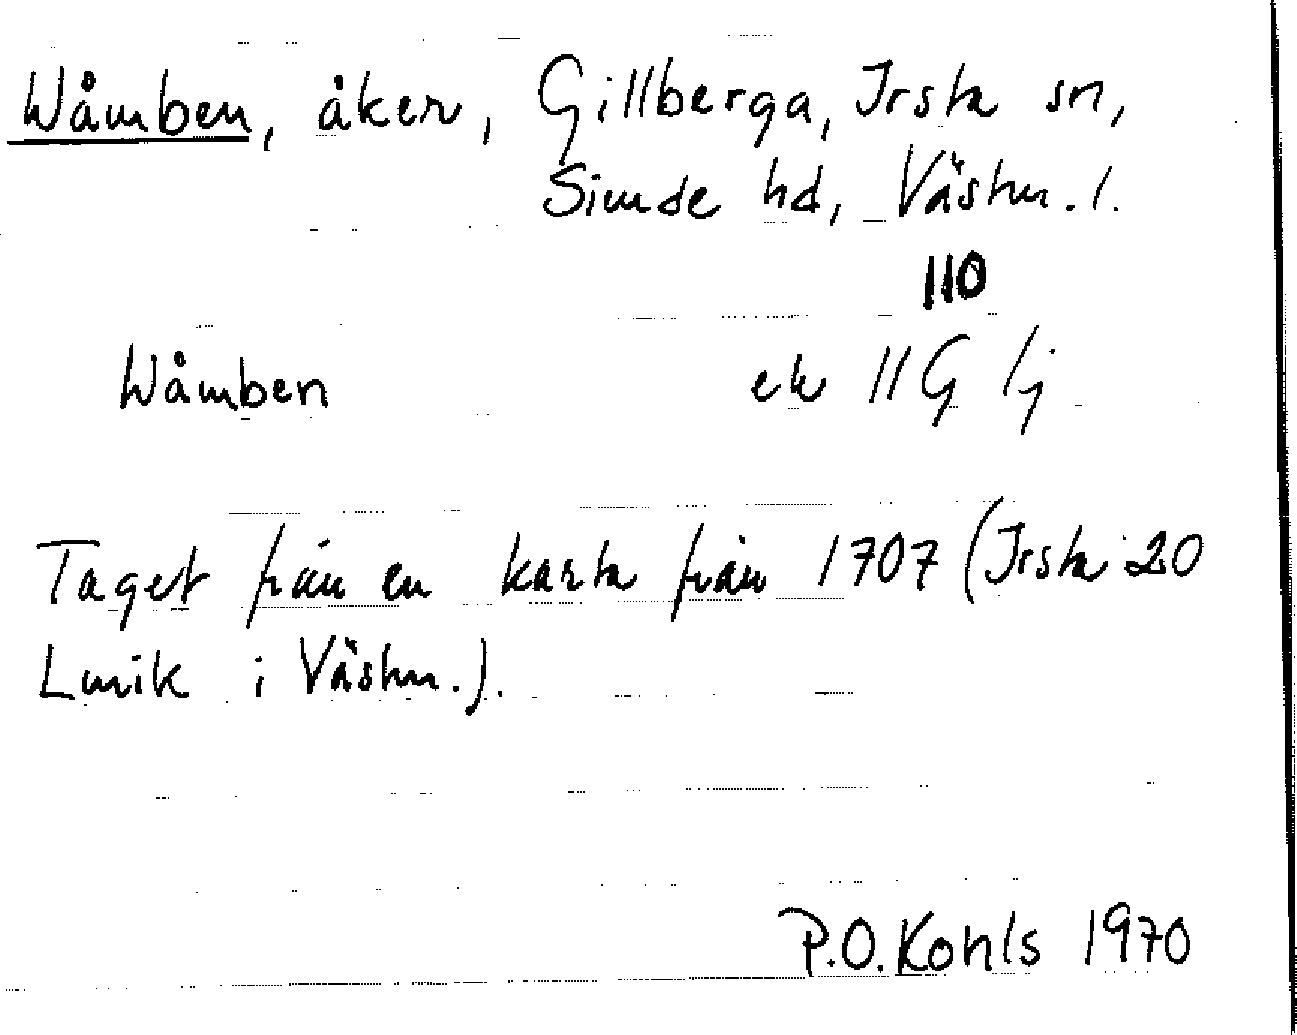 Wåmben, åker, Gillberga, Irsta sn,
Siende hd, Västm. l.
110
Wåmben ek 11G lj
Taget från en karta från 1707 (Irsta 20
Lmik i Västm.).
P.O. Kohls 1970